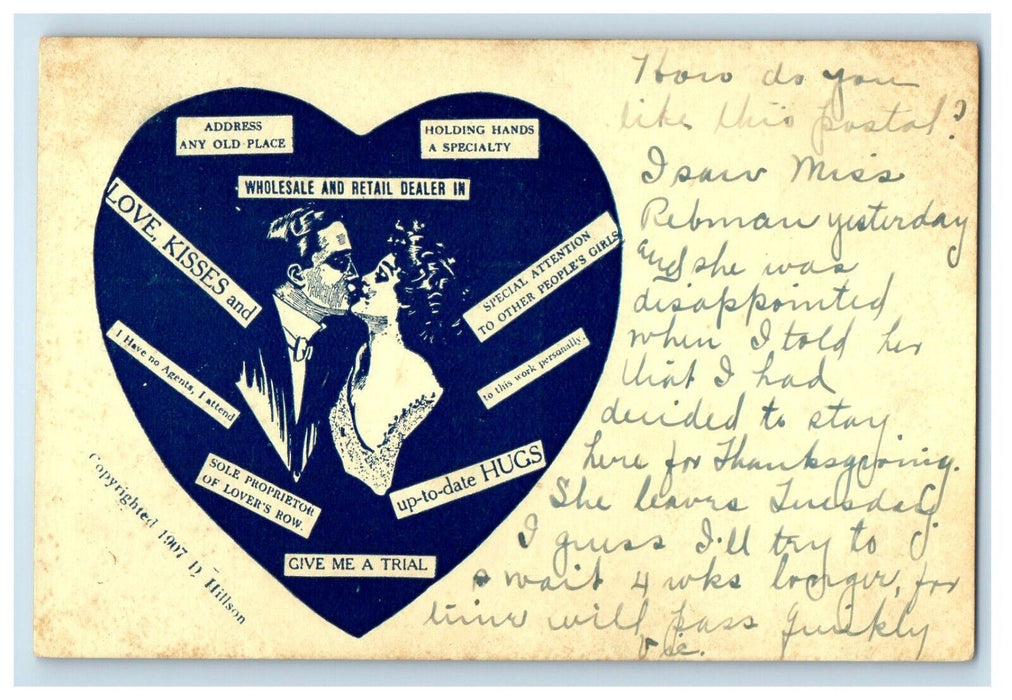 ADDRESS
ANY OLD PLACE
HOLDING HANDS
A SPECIALTY
WHOLESALE AND RETAIL DEALER IN
LOVE, KISSES and
SPECIAL ATTENTION
TO OTHER PEOPLE'S GIRLS
I Have no Agents, I attend
to this work personally.
SOLE PROPRIETOR
OF LOVER'S ROW.
up-to-date HUGS
GIVE ME A TRIAL
Copyrighted 1907 D Hillson
How do you
like this postal?
I saw Miss
Rebman yesterday
and she was
disappointed
when I told her
that I had
decided to stay
here for Thanksgiving.
She leaves Tuesday.
I guess I'll try to
wait 4 wks longer, for
time will pass quickly